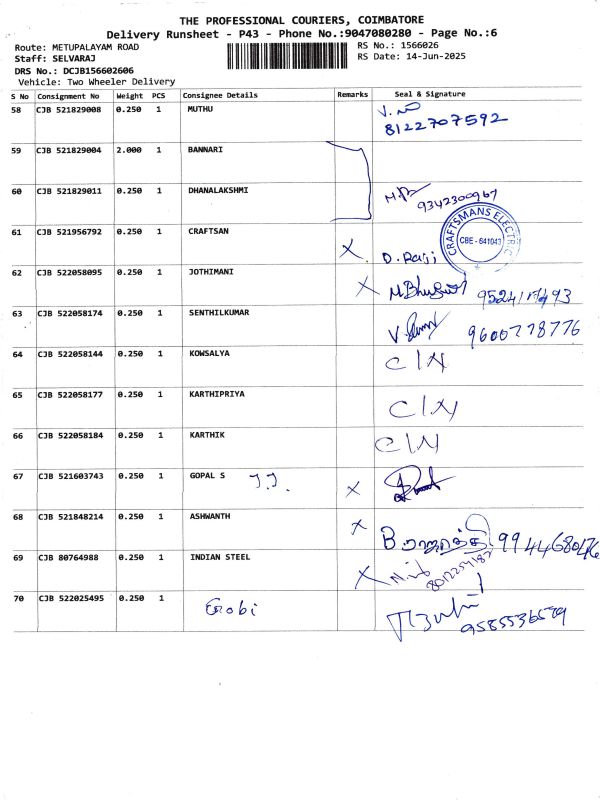 THE PROFESSIONAL COURIERS, COIMBATORE
Delivery Runsheet - P43 - Phone No.:9047080280 - Page No.:6
Route: METUPALAYAM ROAD
RS No.: 1566026
Staff: SELVARAJ
RS Date: 14-Jun-2025
DRS No.: DCJB156602606
Vehicle: Two Wheeler Delivery
S No Consignment No Weight PCS Consignee Details Remarks Seal & Signature
58 CJB 521829008 0.250 1 MUTHU
8122707592
59 CJB 521829004 2.000 1 BANNARI
60 CJB 521829011 0.250 1 DHANALAKSHMI
9342300967
61 CJB 521956792 0.250 1 CRAFTSAN X D. Raji
CRAFTSMANS ELECTRIC
CBE - 641043
62 CJB 522058095 0.250 1 JOTHIMANI X
63 CJB 522058174 0.250 1 SENTHILKUMAR
9600778776
64 CJB 522058144 0.250 1 KOWSALYA C/N
65 CJB 522058177 0.250 1 KARTHIPRIYA C/N
66 CJB 522058184 0.250 1 KARTHIK C/N
67 CJB 521603743 0.250 1 GOPAL S X
68 CJB 521848214 0.250 1 ASHWANTH X
69 CJB 80764988 0.250 1 INDIAN STEEL X
70 CJB 522025495 0.250 1